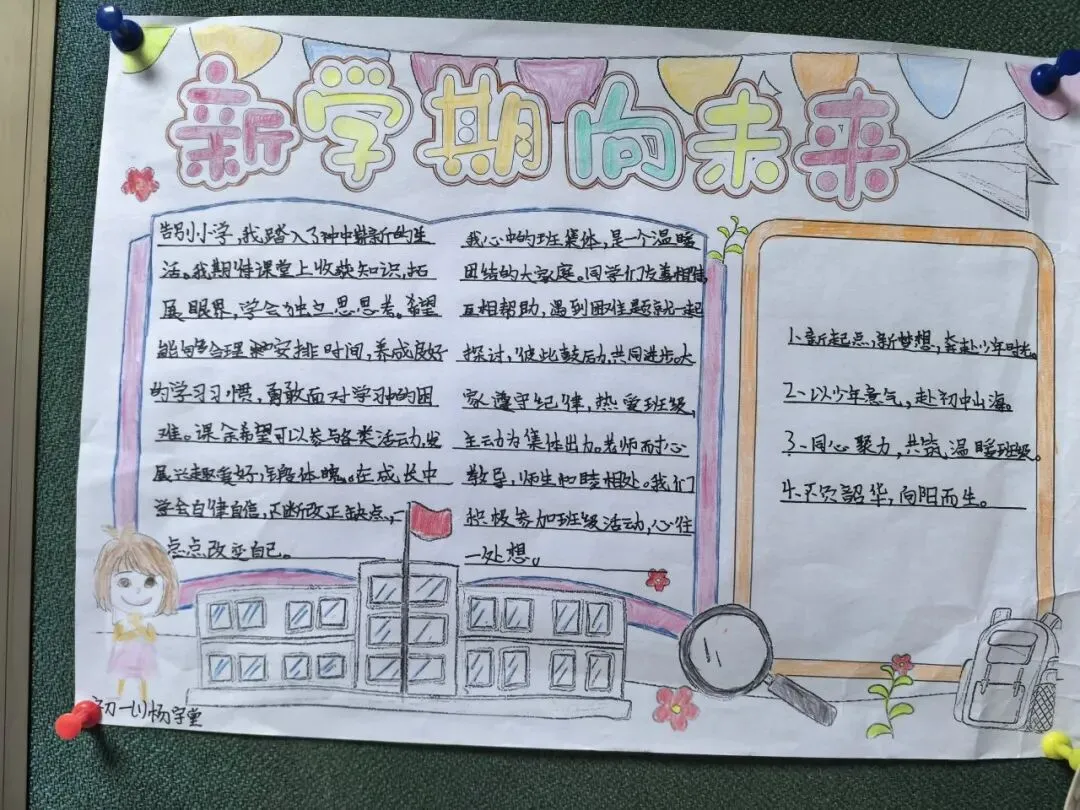 新学期向未来
告别小学，我踏入了初中崭新的生
活。我期待课堂上收获知识，拓
展眼界，学会独立思思考。希望
能够合理安排时间，养成良好
的学习习惯，勇敢面对学习中的困
难。课余希望可以参与各类活动，发
展兴趣爱好，锻练体魄。在成长中
学会自律自信，不断改正缺点，一
点点改变自己。
我心中的班集体，是一个温暖
团结的大家庭。同学们友善相待
互相帮助，遇到困难题就一起
探讨，彼此鼓励，共同进步。大
家遵守纪律，热爱班级，
主动为集体出力。老师耐心
教导，师生和睦相处。我们
积极参加班级活动，心往
一处想。
1、新起点，新梦想，奔赴少年时光。
2、以少年意气，赴初中山海。
3、同心聚力，共筑温暖班级。
4、不负韶华，向阳而生。
初一(1)杨宇